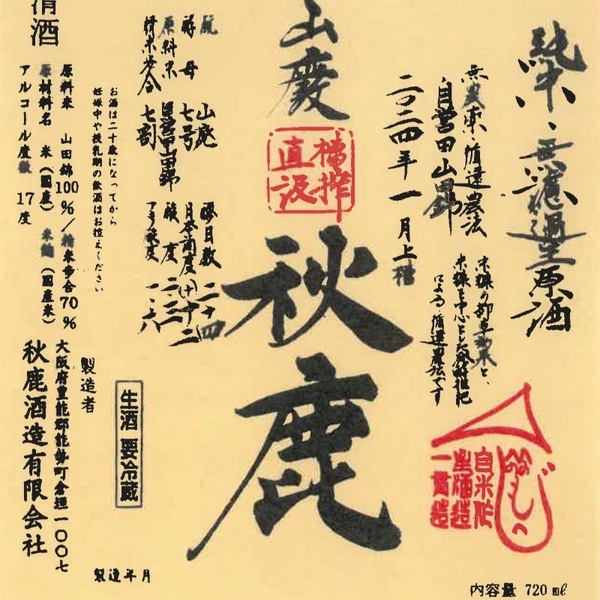 純米・無濾過生原酒
無農薬・循環農法
自営田山田錦
二〇二四年一月上槽
米糠の部
によるの循環農法です
自米作
酒造
一貫造
山廃
槽搾
直汲
秋鹿
酛 山廃
酵母 七号
原料米
精米歩合 七割
醪日数 二十四
日本酒度 (+)十二
酸度 二・三
アミノ酸度 一・六
清酒
お酒は二十歳になってから
妊娠中や授乳期の飲酒はお控えください
原料米 山田錦100%/精米歩合70%
原材料名 米(国産) 米麹(国産米)
アルコール度数 17度
生酒 要冷蔵
製造者
大阪府豊能郡能勢町倉垣一〇〇七
秋鹿酒造有限会社
製造年月
内容量 720mℓ